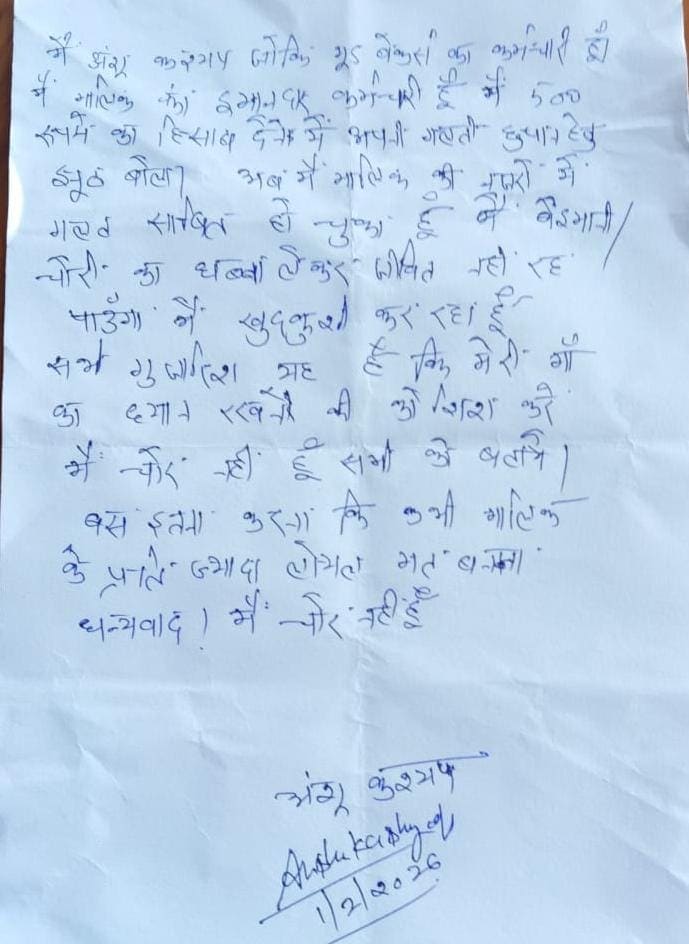 मैं अंशू कश्यप जोकि गुड बेकर्स का कर्मचारी हूँ
मैं मालिक का इमानदार कर्मचारी हूँ मैं 500
रूपये का हिसाब देने में अपनी गलती छुपाने हेतु
झूठ बोला। अब मैं मालिक की नजरों में
गलत साबित हो चुका हूँ मैं बेइमानी/
चोरी का धब्बा लेकर जीवित नहीं रह
पाउँगा मैं खुदकुशी कर रहा हूँ
सभी गुजारिश यह है कि मेरी माँ
का ध्यान रखने की कोशिश करें
मैं चोर नहीं हूँ सभी को बताये।
बस इतना करना कि कभी मालिक
के प्रति ज्यादा लोयल मत बनना
धन्यवाद। मैं चोर नहीं हूँ
अंशू कश्यप
Anshu Kashyap
1/2/2026